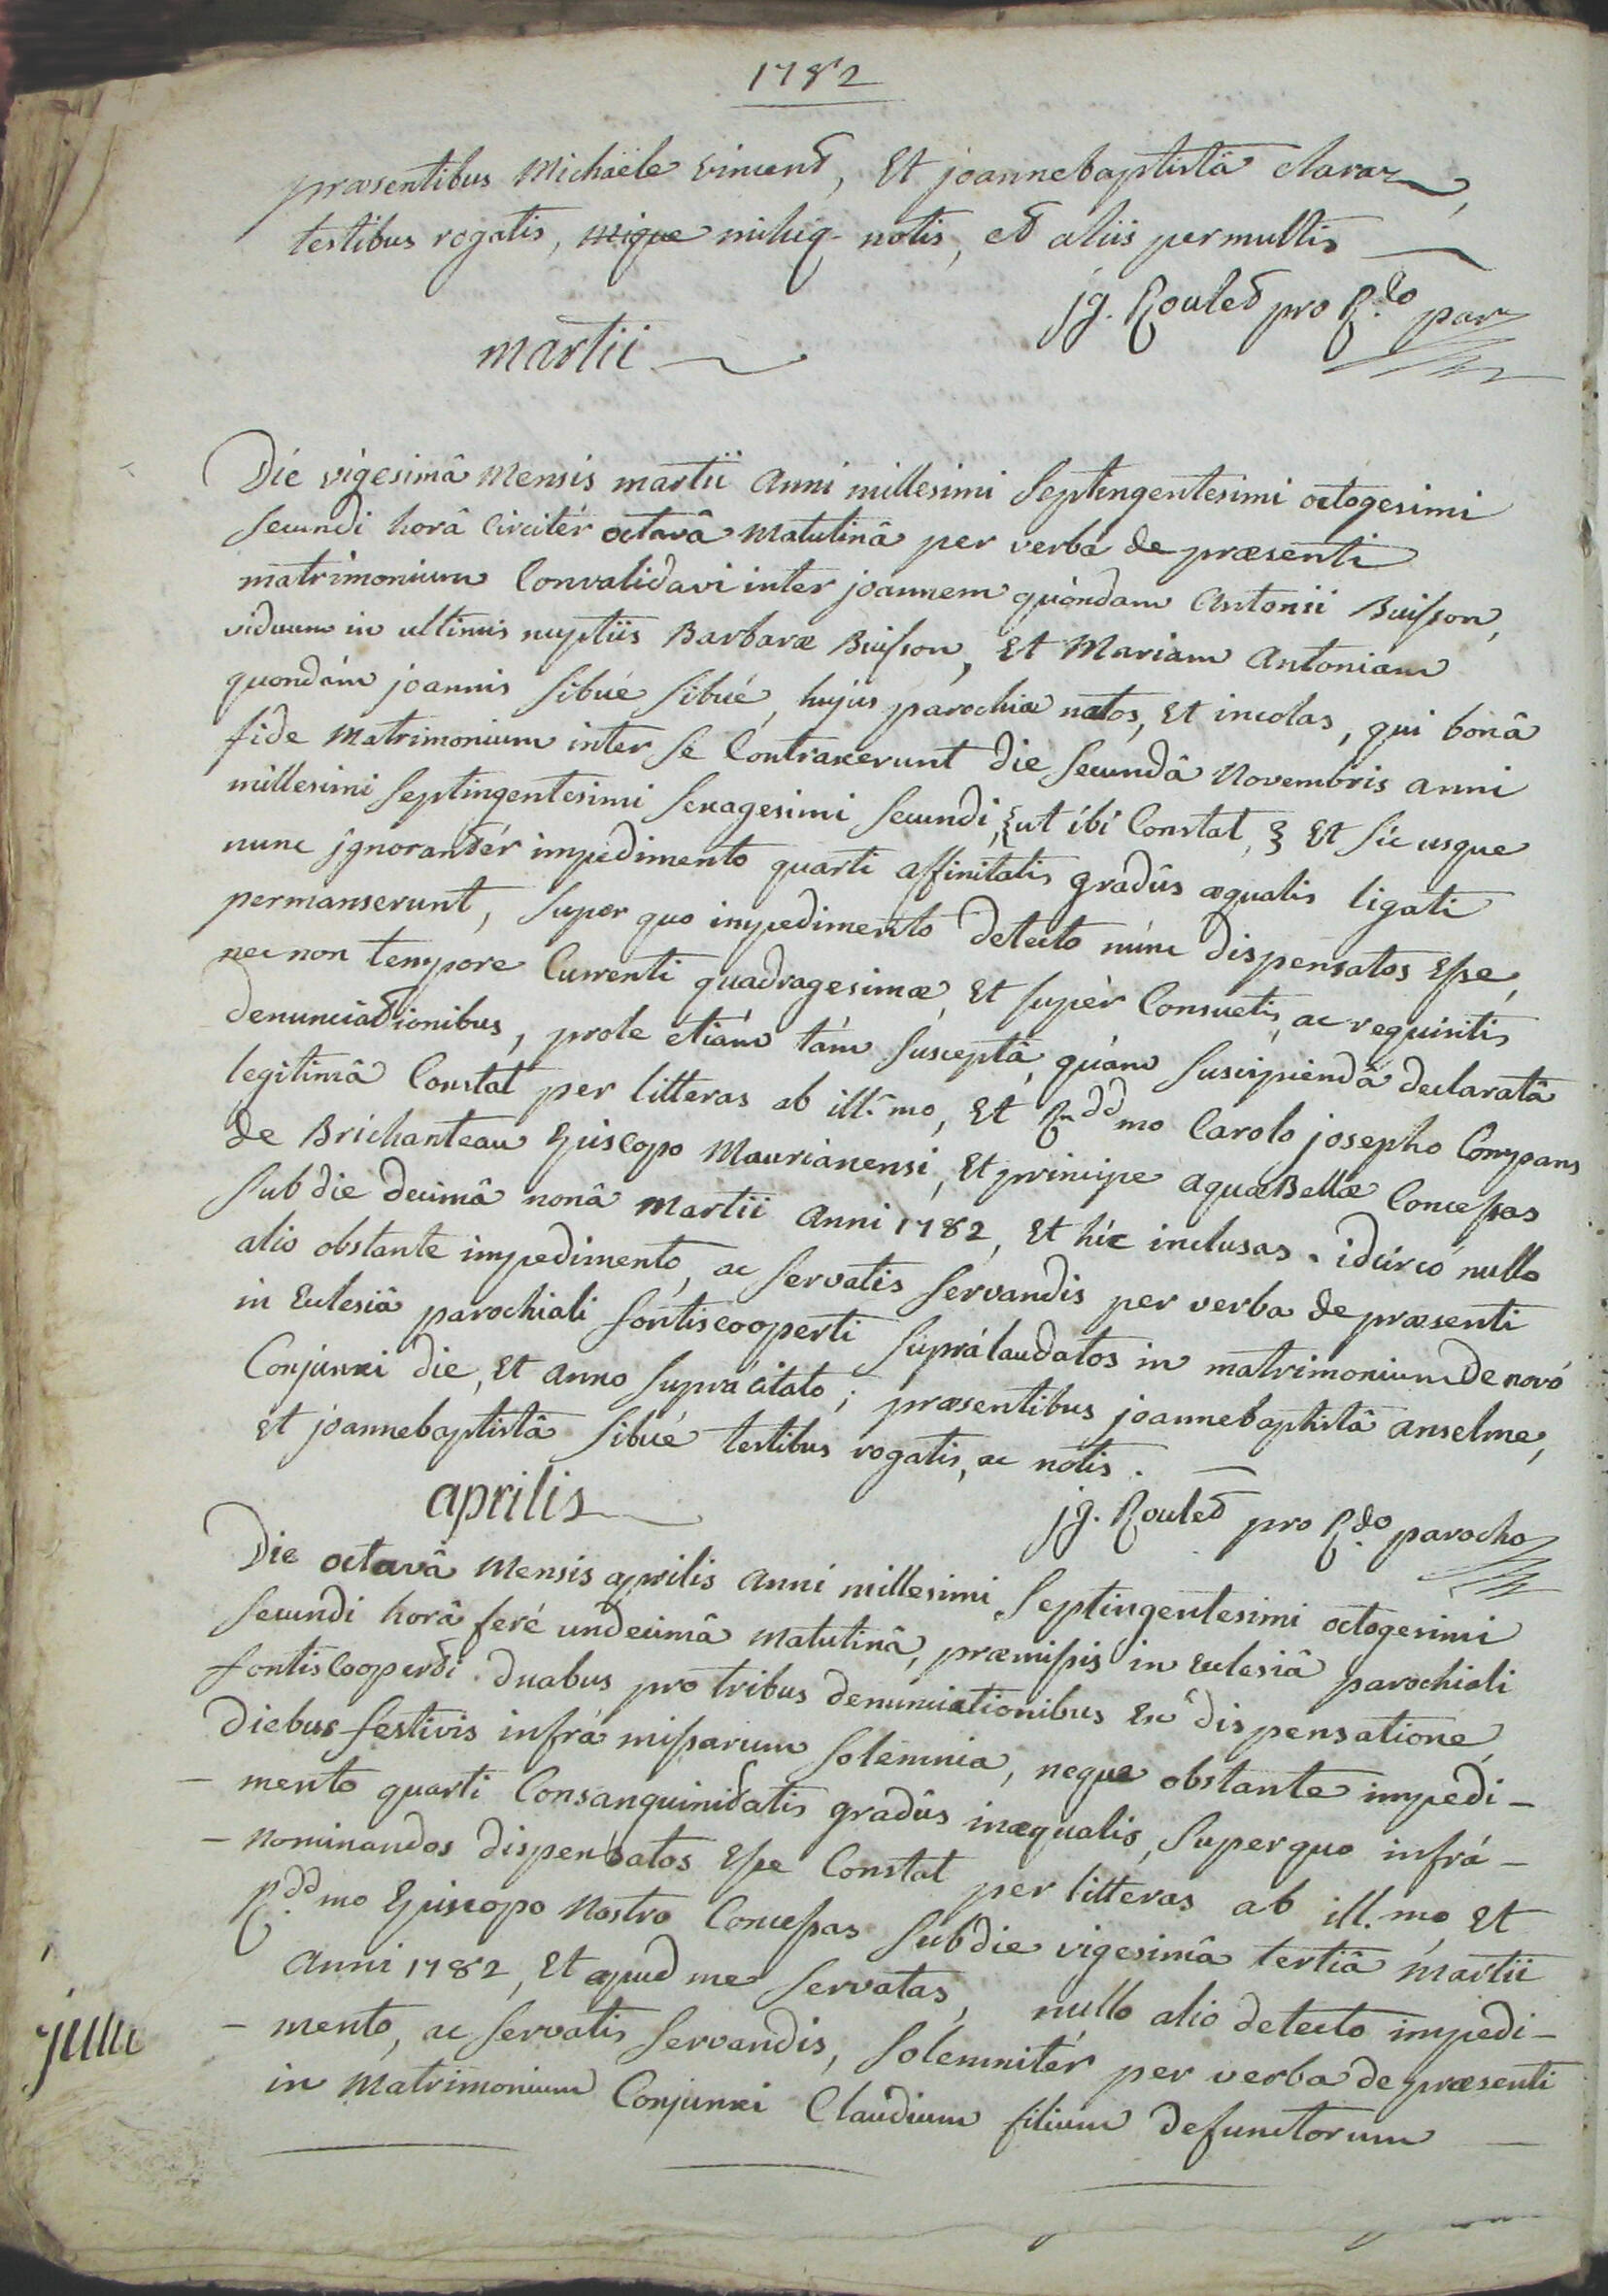 1782
præsentibus Michaële vincent, Et joannebaptistâ claraz,
testibus rogatis, mique mihiq. notis, et aliis permultis
jg. Roulet pro R.do par
martii
Die vigesimâ Mensis martii Anni millesimi Septingentesimi octogesimi
Secundi horâ Circitér octavâ Matutinâ per verba de præsenti
matrimonium Convalidavi inter joannem quòndam Antonii Buisson,
viduum in ultimis nuptiis Barbaræ Buisson, Et Mariam Antoniam
quondám joannis Sibué Sibué, hujus parochiæ natos, Et incolas, qui bonâ
fide Matrimonium inter Se Contraxerunt die Secundâ Novembris anni
millesimi Septingentesimi Sexagesimi Secundi, ut ibi Constat, Et Sic usque
nunc jgnorantér impedimento quarti affinitatis gradûs æqualis ligati
permanserunt, Super quo impedimento detecto núnc dispensatos Esse,
nec non tempore Currenti quadragesimæ, Et supèr Consuetis, ac requisitis
denunciationibus, prole étiám tám Susceptâ, quám Suscipiendâ declaratâ
legitimâ Constat per litteras ab ill.mo, Et R.ddmo Carolo josepho Compans
de Brichanteau Episcopo Maurianensi, Et principe aquæBellæ Concessas
Sub die decimâ nonâ Martii Anni 1782, Et hîc inclusas. idcircó nullo
alio obstante impedimento, ac Servatis Servandis per verba de præsenti
in Ecclesiâ parochiali fontiscooperti Suprálaudatos in matrimonium de novó
Conjunxi die, Et Anno Suprácitato; præsentibus joannebaptistâ anselme,
Et joannebaptistâ Sibué testibus rogatis, ac notis.
jg. Roulet pro R.do parocho
aprilis
Die octavâ Mensis aprilis Anni millesimi Septingentesimi octogesimi
Secundi horâ feré undecimâ Matutinâ, præmissis in Ecclesiâ parochiali
fontisCooperti duabus pro tribus denunciationibus Ex dispensatione,
Diebus festivis infrá missarum Solemnia, neque obstante impedi-
- mento quarti Consanguinitatis gradûs inæqualis, Super quo infrá-
- Nominandos dispensatos Esse Constat per litteras ab ill.mo, Et
R.ddmo Episcopo Nostro Concessas Sub die vigesimâ tertiâ Martii
Anni 1782, Et apud me Servatas, nullo alio detecto impedi-
- mento, ac Servatis Servandis, Solemnitér per verba de præsenti
in Matrimonium Conjunxi Claudium filium defunctorum